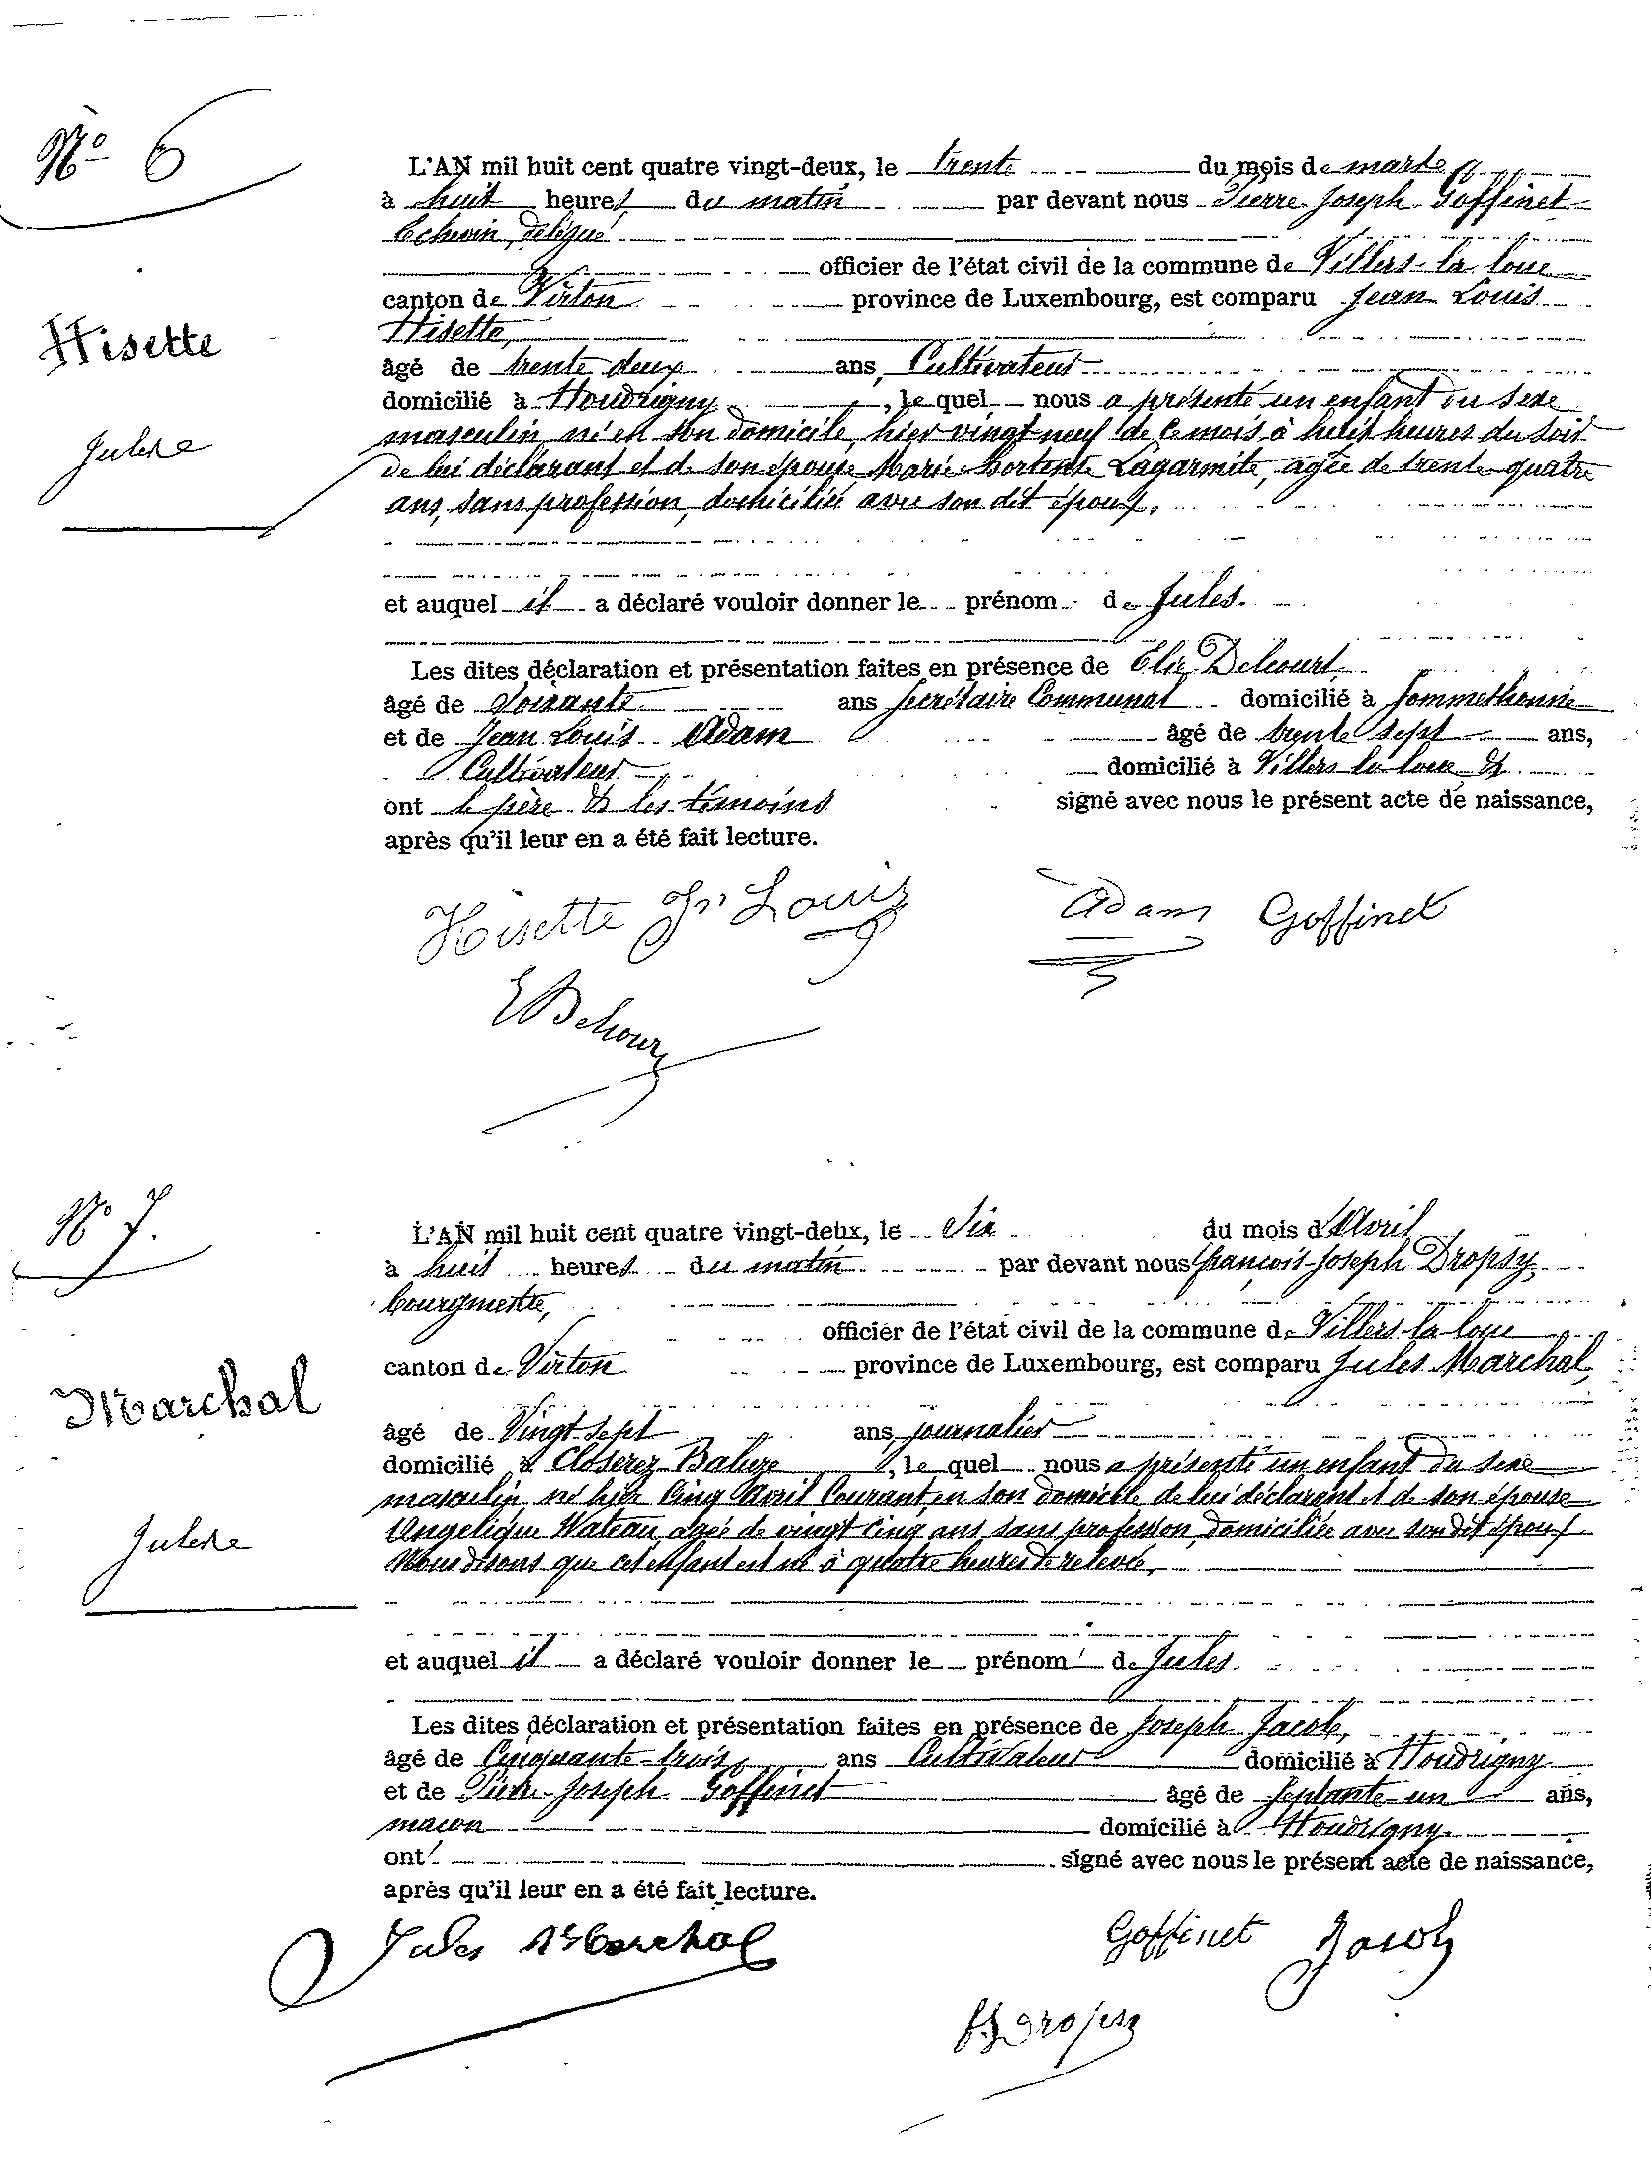 N° 6
L'AN mil huit cent quatre vingt-deux, le trente du mois de mars
à huit heures du matin par devant nous Pierre Joseph Goffinet
Echevin délégué
officier de l'état civil de la commune de Villers-la-loue
canton de Virton province de Luxembourg, est comparu Jean Louis
Hisette,
Hisette
âgé de trente deux ans, Cultivateur
domicilié à Houdrigny, le quel nous a présenté un enfant du sexe
masculin, né en son domicile, hier vingt neuf de ce mois à huit heures du soir
Jules
de lui déclarant et de son épouse Marie Hortense Lagarmite, agée de trente quatre
ans, sans profession, domiciliée avec son dit époux.
et auquel il a déclaré vouloir donner le prénom de Jules.
Les dites déclaration et présentation faites en présence de Elie Delcourt
âgé de Soixante ans Secrétaire Communal domicilié à Sommethonne
et de Jean Louis Adam âgé de trente sept ans,
Cultivateur domicilié à Villers la loue &
ont le père & les témoins signé avec nous le présent acte de naissance,
après qu'il leur en a été fait lecture.
Hisette Jn Louis Adam Goffinet
N° 7.
L'AN mil huit cent quatre vingt-deux, le Six du mois d'Avril
à huit heures du matin par devant nous François-Joseph Dropsy
bourgmestre,
officier de l'état civil de la commune de Villers-la-loue
canton de Virton province de Luxembourg, est comparu Jules Marchal,
Marchal
âgé de Vingt-sept ans, journalier
domicilié à Closerez Balure, le quel nous a présenté un enfant du sexe
masculin, né hier Cinq Avril Courant, en son domicile de lui déclarant et de son épouse
Jules
Angelique Wateau, agée de vingt Cinq ans, sans profession, domiciliée avec son dit époux
Nous disons que cet enfant est né à quatre heures de relevée.
et auquel il a déclaré vouloir donner le prénom de Jules.
Les dites déclaration et présentation faites en présence de Joseph Jacob,
âgé de Cinquante-trois ans Cultivateur domicilié à Houdrigny
et de Pierre-Joseph Goffinet âgé de Septante-un ans,
maçon domicilié à Houdrigny
ont signé avec nous le présent acte de naissance,
après qu'il leur en a été fait lecture.
Jules Marchal Goffinet Jacob
FJ Dropsy